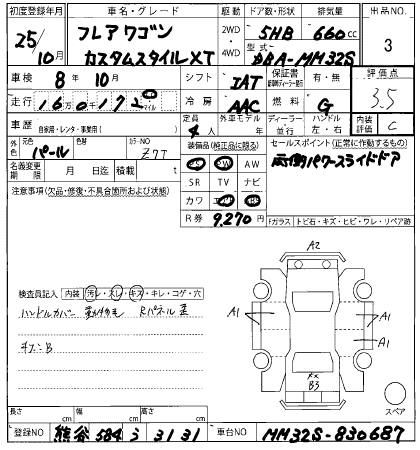 初度登録年月
車名・グレード
駆動
ドア数・形状
排気量
出品NO.
25/10月
フレアワゴン
カスタムスタイルXT
2WD
4WD
5HB
660cc
型式
DBA-MM32S
3
車検 8年10月
シフト
IAT
保証書
有・無
評価点
3.5
走行
16万0千172
マイル
冷房
AAC
燃料
G
車歴
自家用・レンタ・事業用( )
定員
4人
外車モデル
年
ディーラー・並行
ハンドル
左・右
内装評価
C
外色
元色
パール
色替
カラーNO
Z7T
装備品(純正品に限る)
セールスポイント(正常に作動するもの)
両側パワースライドドア
名義変更期限
月 日迄
積載
t
AW
SR TV ナビ
カワ
R券 9,270円
注意事項(欠品・修復・不具合箇所および状態)
Fガラス トビ石・キズ・ヒビ・ワレ・リペア跡
検査員記入
内装
汚レ・スレ・キズ・キレ・コゲ・穴
ハンドルカバー
Rパネル
キズ・B
A2
A1
A1
A1
B3
スペア
長さ cm
幅 cm
高さ cm
登録NO 熊谷 584 う 3131
車台NO MM32S-830687